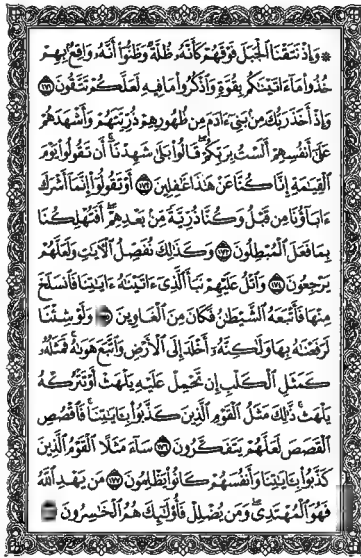 ۞ وَإِذْ نَتَقْنَا ٱلْجَبَلَ فَوْقَهُمْ كَأَنَّهُۥ ظُلَّةٌ وَظَنُّوٓا۟ أَنَّهُۥ وَاقِعٌۢ بِهِمْ
خُذُوا۟ مَآ ءَاتَيْنَـٰكُم بِقُوَّةٍ وَٱذْكُرُوا۟ مَا فِيهِ لَعَلَّكُمْ تَتَّقُونَ ١٧١
وَإِذْ أَخَذَ رَبُّكَ مِنۢ بَنِىٓ ءَادَمَ مِن ظُهُورِهِمْ ذُرِّيَّتَهُمْ وَأَشْهَدَهُمْ
عَلَىٰٓ أَنفُسِهِمْ أَلَسْتُ بِرَبِّكُمْ ۖ قَالُوا۟ بَلَىٰ ۛ شَهِدْنَآ ۛ أَن تَقُولُوا۟ يَوْمَ
ٱلْقِيَـٰمَةِ إِنَّا كُنَّا عَنْ هَـٰذَا غَـٰفِلِينَ ١٧٢ أَوْ تَقُولُوٓا۟ إِنَّمَآ أَشْرَكَ
ءَابَآؤُنَا مِن قَبْلُ وَكُنَّا ذُرِّيَّةً مِّنۢ بَعْدِهِمْ ۖ أَفَتُهْلِكُنَا
بِمَا فَعَلَ ٱلْمُبْطِلُونَ ١٧٣ وَكَذَٰلِكَ نُفَصِّلُ ٱلْـَٔايَـٰتِ وَلَعَلَّهُمْ
يَرْجِعُونَ ١٧٤ وَٱتْلُ عَلَيْهِمْ نَبَأَ ٱلَّذِىٓ ءَاتَيْنَـٰهُ ءَايَـٰتِنَا فَٱنسَلَخَ
مِنْهَا فَأَتْبَعَهُ ٱلشَّيْطَـٰنُ فَكَانَ مِنَ ٱلْغَاوِينَ وَلَوْ شِئْنَا
لَرَفَعْنَـٰهُ بِهَا وَلَـٰكِنَّهُۥٓ أَخْلَدَ إِلَى ٱلْأَرْضِ وَٱتَّبَعَ هَوَىٰهُ ۚ فَمَثَلُهُۥ
كَمَثَلِ ٱلْكَلْبِ إِن تَحْمِلْ عَلَيْهِ يَلْهَثْ أَوْ تَتْرُكْهُ
يَلْهَث ۚ ذَّٰلِكَ مَثَلُ ٱلْقَوْمِ ٱلَّذِينَ كَذَّبُوا۟ بِـَٔايَـٰتِنَا ۚ فَٱقْصُصِ
ٱلْقَصَصَ لَعَلَّهُمْ يَتَفَكَّرُونَ ١٧٦ سَآءَ مَثَلًا ٱلْقَوْمُ ٱلَّذِينَ
كَذَّبُوا۟ بِـَٔايَـٰتِنَا وَأَنفُسَهُمْ كَانُوا۟ يَظْلِمُونَ ١٧٧ مَن يَهْدِ ٱللَّهُ
فَهُوَ ٱلْمُهْتَدِى ۖ وَمَن يُضْلِلْ فَأُو۟لَـٰٓئِكَ هُمُ ٱلْخَـٰسِرُونَ